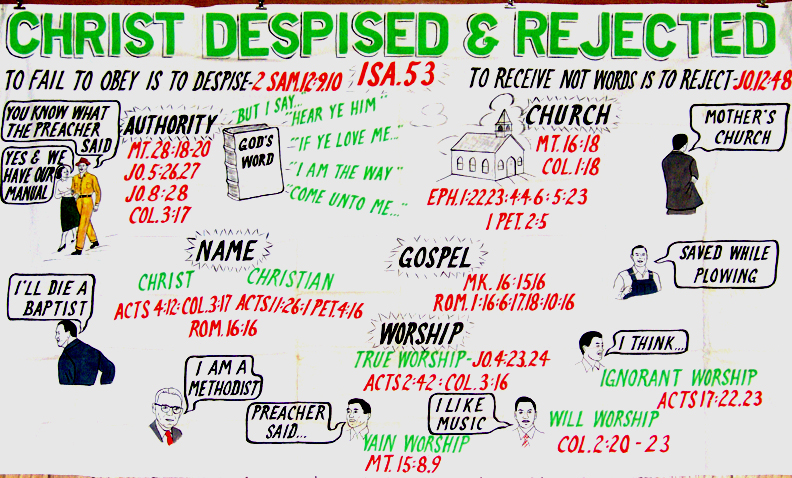 CHRIST DESPISED & REJECTED
TO FAIL TO OBEY IS TO DESPISE-2 SAM.12:9,10
ISA.53
TO RECEIVE NOT WORDS IS TO REJECT-JO.12:48
YOU KNOW WHAT
THE PREACHER
SAID
YES & WE
HAVE OUR
MANUAL
AUTHORITY
MT.28:18-20
JO.5:26,27
JO.8:28
COL.3:17
GOD'S
WORD
"BUT I SAY..."
"HEAR YE HIM"
"IF YE LOVE ME..."
"I AM THE WAY"
"COME UNTO ME..."
CHURCH
MT.16:18
COL.1:18
EPH.1:22,23:4:4-6:5:23
1 PET.2:5
MOTHER'S
CHURCH
NAME
CHRIST
CHRISTIAN
ACTS 4:12:COL.3:17 ACTS 11:26:1 PET.4:16
ROM.16:16
GOSPEL
MK. 16:15,16
ROM.1:16:6:17,18:10:16
SAVED WHILE
PLOWING
I'LL DIE A
BAPTIST
WORSHIP
TRUE WORSHIP-JO.4:23,24
ACTS 2:42:COL.3:16
I THINK...
IGNORANT WORSHIP
ACTS 17:22,23
I AM A
METHODIST
PREACHER
SAID...
VAIN WORSHIP
MT. 15:8,9
I LIKE
MUSIC
WILL WORSHIP
COL.2:20-23